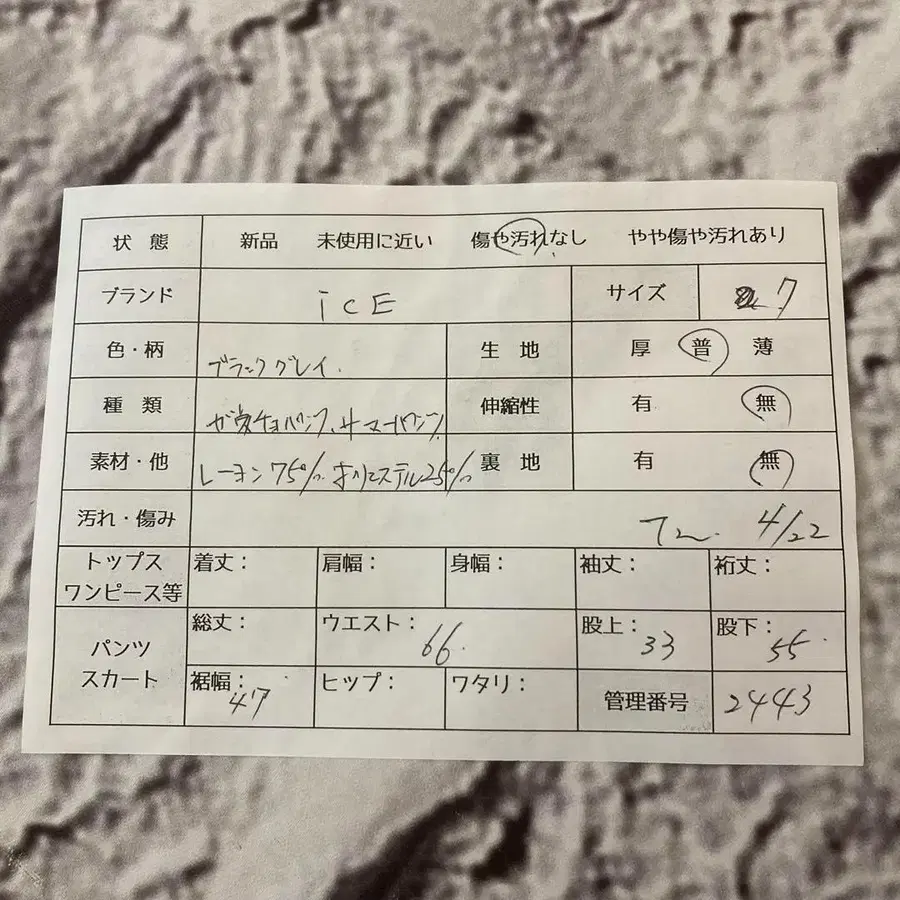 状態 新品 未使用に近い 傷や汚れなし やや傷や汚れあり
ブランド iCE サイズ 7
色・柄 ブラックグレイ. 生地 厚 普 薄
種類 伸縮性 有 無
素材・他 レーヨン75%. ポリエステル25% 裏地 有 無
汚れ・傷み 4/22
トップス ワンピース等 着丈: 肩幅: 身幅: 袖丈: 裄丈:
パンツ スカート 総丈: ウエスト: 66. 股上: 33 股下: 55.
裾幅: 47 ヒップ: ワタリ: 管理番号 2443